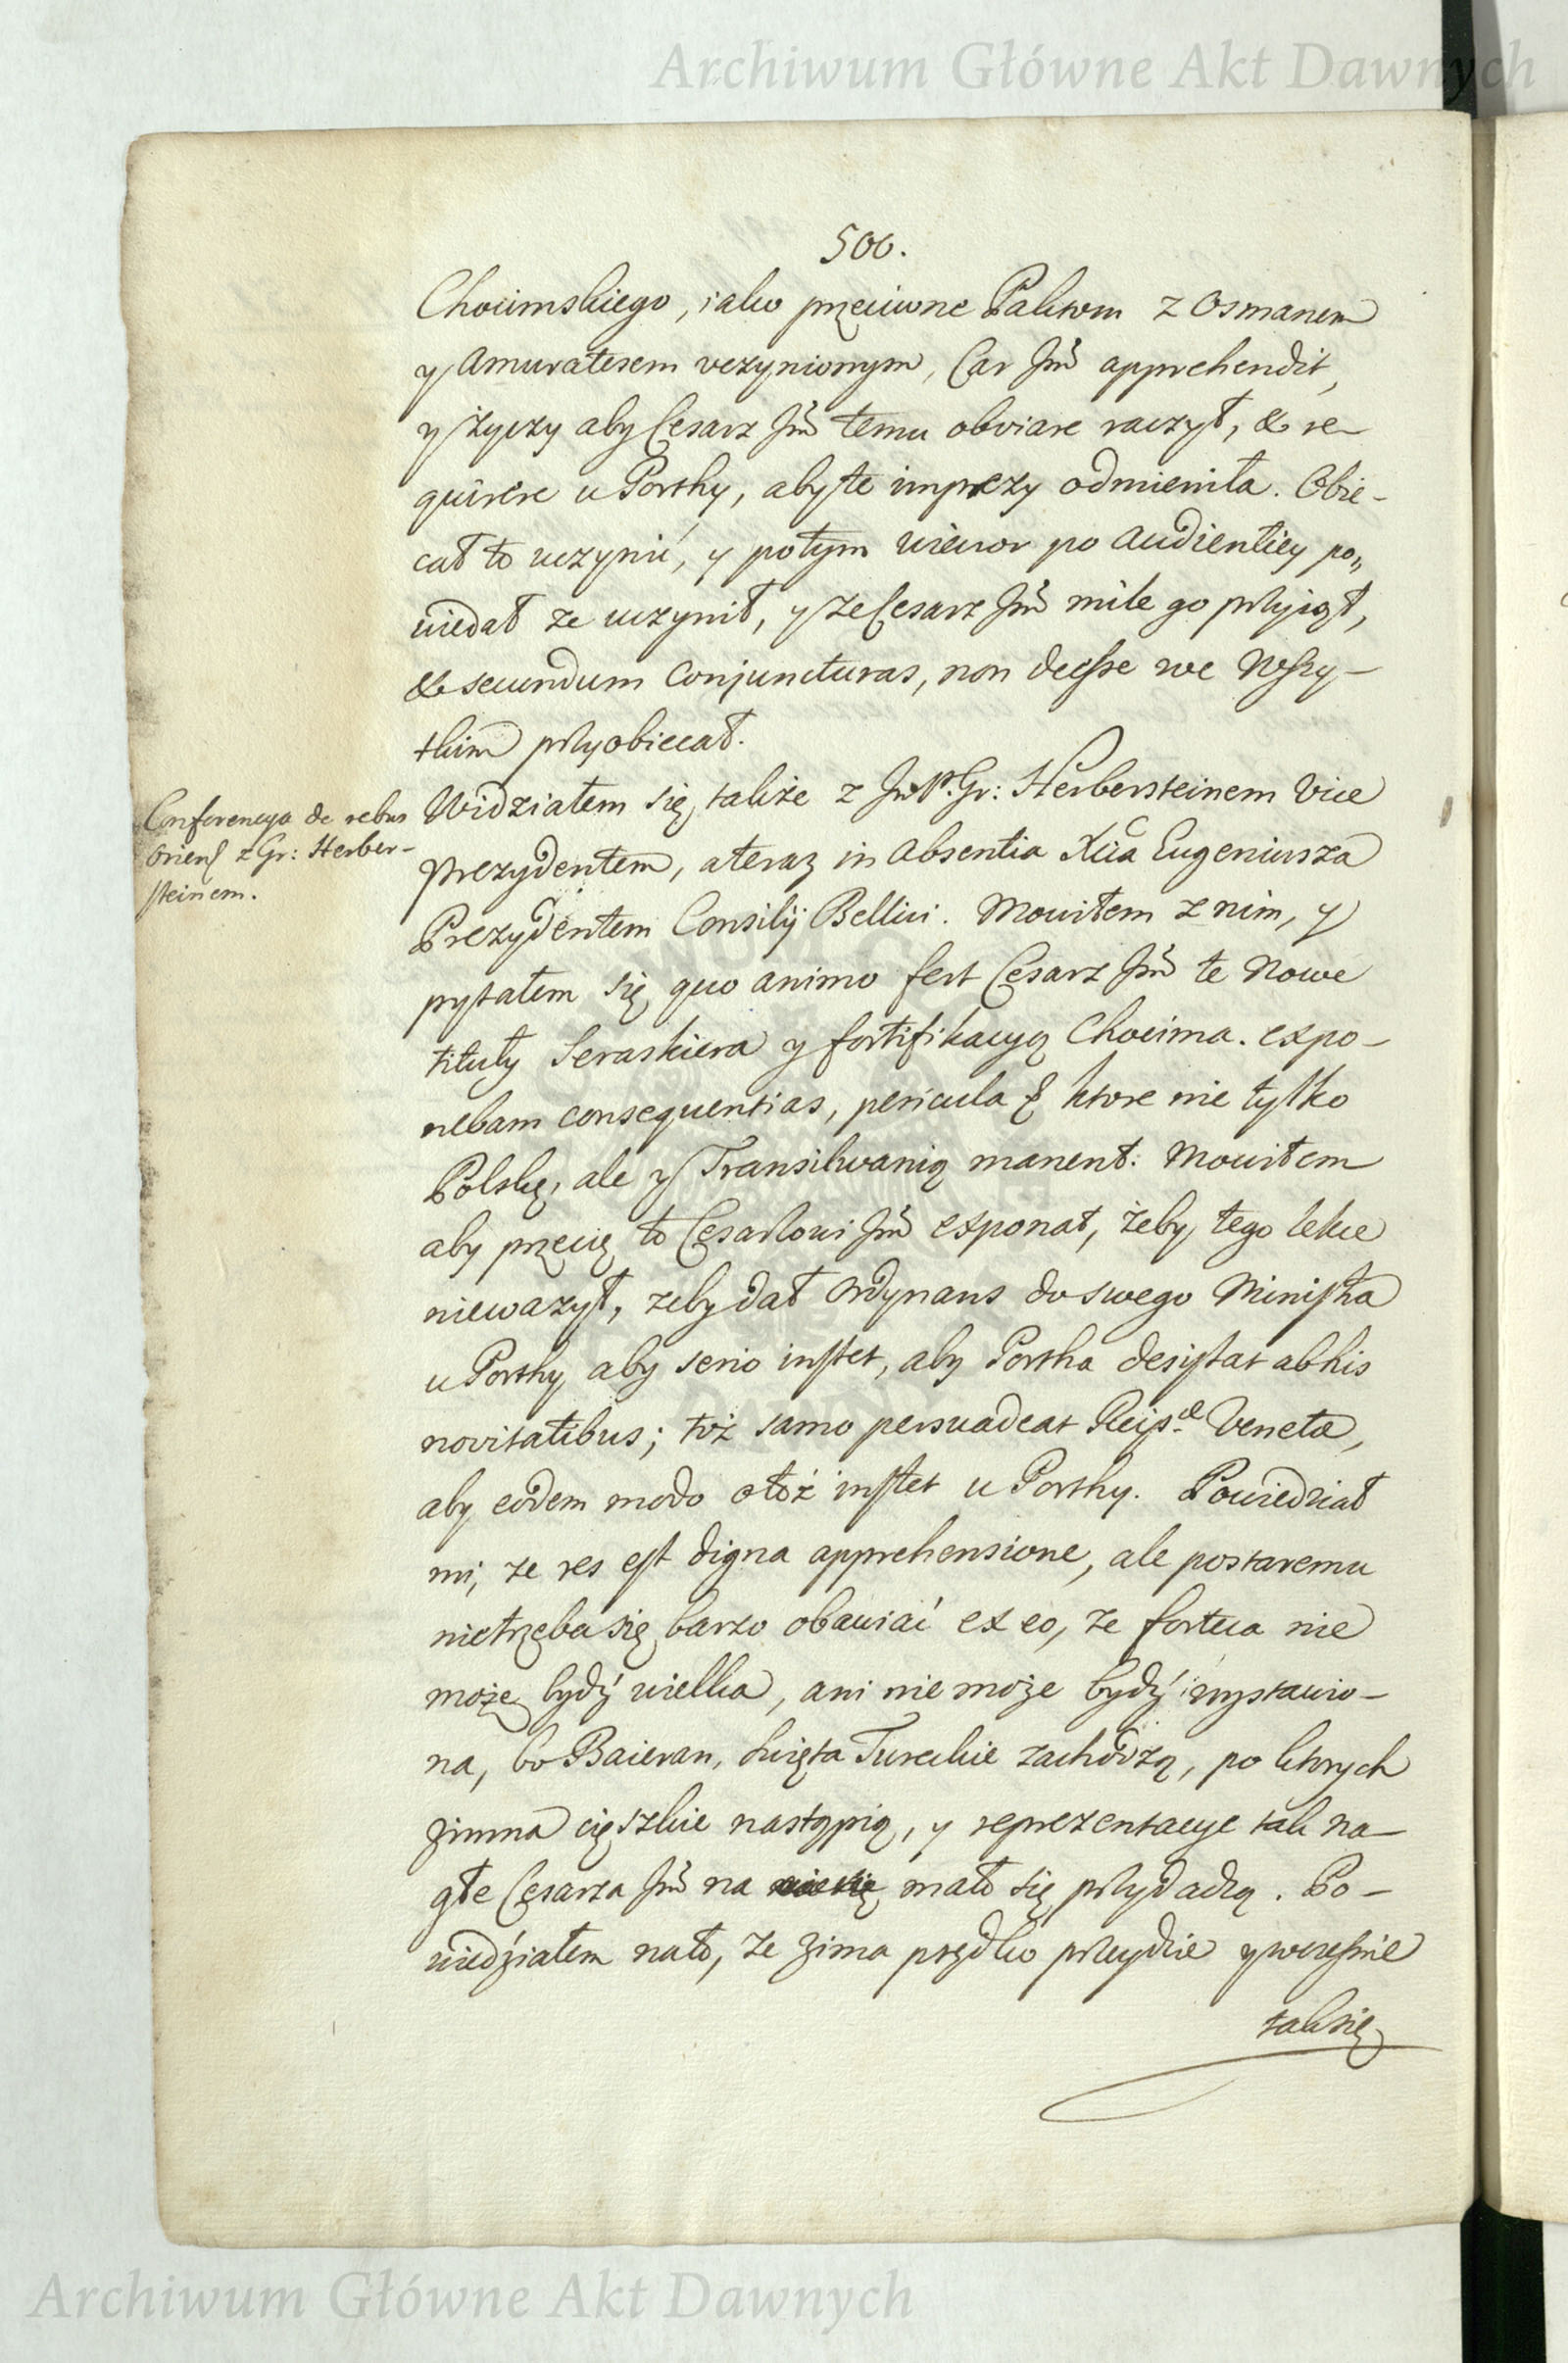 Archiwum Główne Akt Dawnych
500.
Chocimskiego, iako przeciwne Paktom z Osmanem
y Amuratesem uczynionym, Car Jm̃ apprehendit,
y życzy aby Cesarz Jm̃ temu obviare raczył, & re-
quirere u Porthy, aby te imprezy odmieniła. Obie-
cał to uczynić, y potym wieczor po Audientiey po„
wiedał ze uczynił, y ze Cesarz Jm̃ mile go przyiął,
& secundum conjuncturas, non deesse we wszy-
tkim przyobiecał.
Conferencya de rebus
orient z Gr: Herber-
steinem.
Widziałem się także z Jm P. Gr: Herbersteinem Vice
Prezydentem, a teraz in absentia Xcia Eugeniusza
Prezydentem Consilij Bellici. Mowiłem z nim, y
pytałem się quo animo fert Cesarz Jm̃ te nowe
tituły Seraskiera y fortifikacyą Chocima. expo-
nebam consequentias, pericula & ktore nie tylko
Polskę, ale y Transilwanią manent: Mowiłem
aby przecię to Cesarzowi Jm̃ exponat, żeby tego lekce
nieważył, zeby dał ordynans do swego Ministra
u Porthy aby serio instet, aby Portha desistat ab his
novitatibus; toż samo persuadeat Reipcæ Venetæ,
aby eodem modo otoż instet u Porthy. Powiedział
mi, ze res est digna apprehensione, ale postaremu
nietrzeba się barzo obawiać ex eo, ze forteca nie
może bydź wielka, ani nie może bydź wystawio-
na, bo Baieran, swięta Tureckie zachodzą, po ktorych
zimna cięszkie nastąpią, y reprezentacye tak na-
głe Cesarza Jm̃ na mało się przydadzą. Po-
wiedziałem nato, ze zima prędko przeydzie y wczesnie
tak się
Archiwum Główne Akt Dawnych